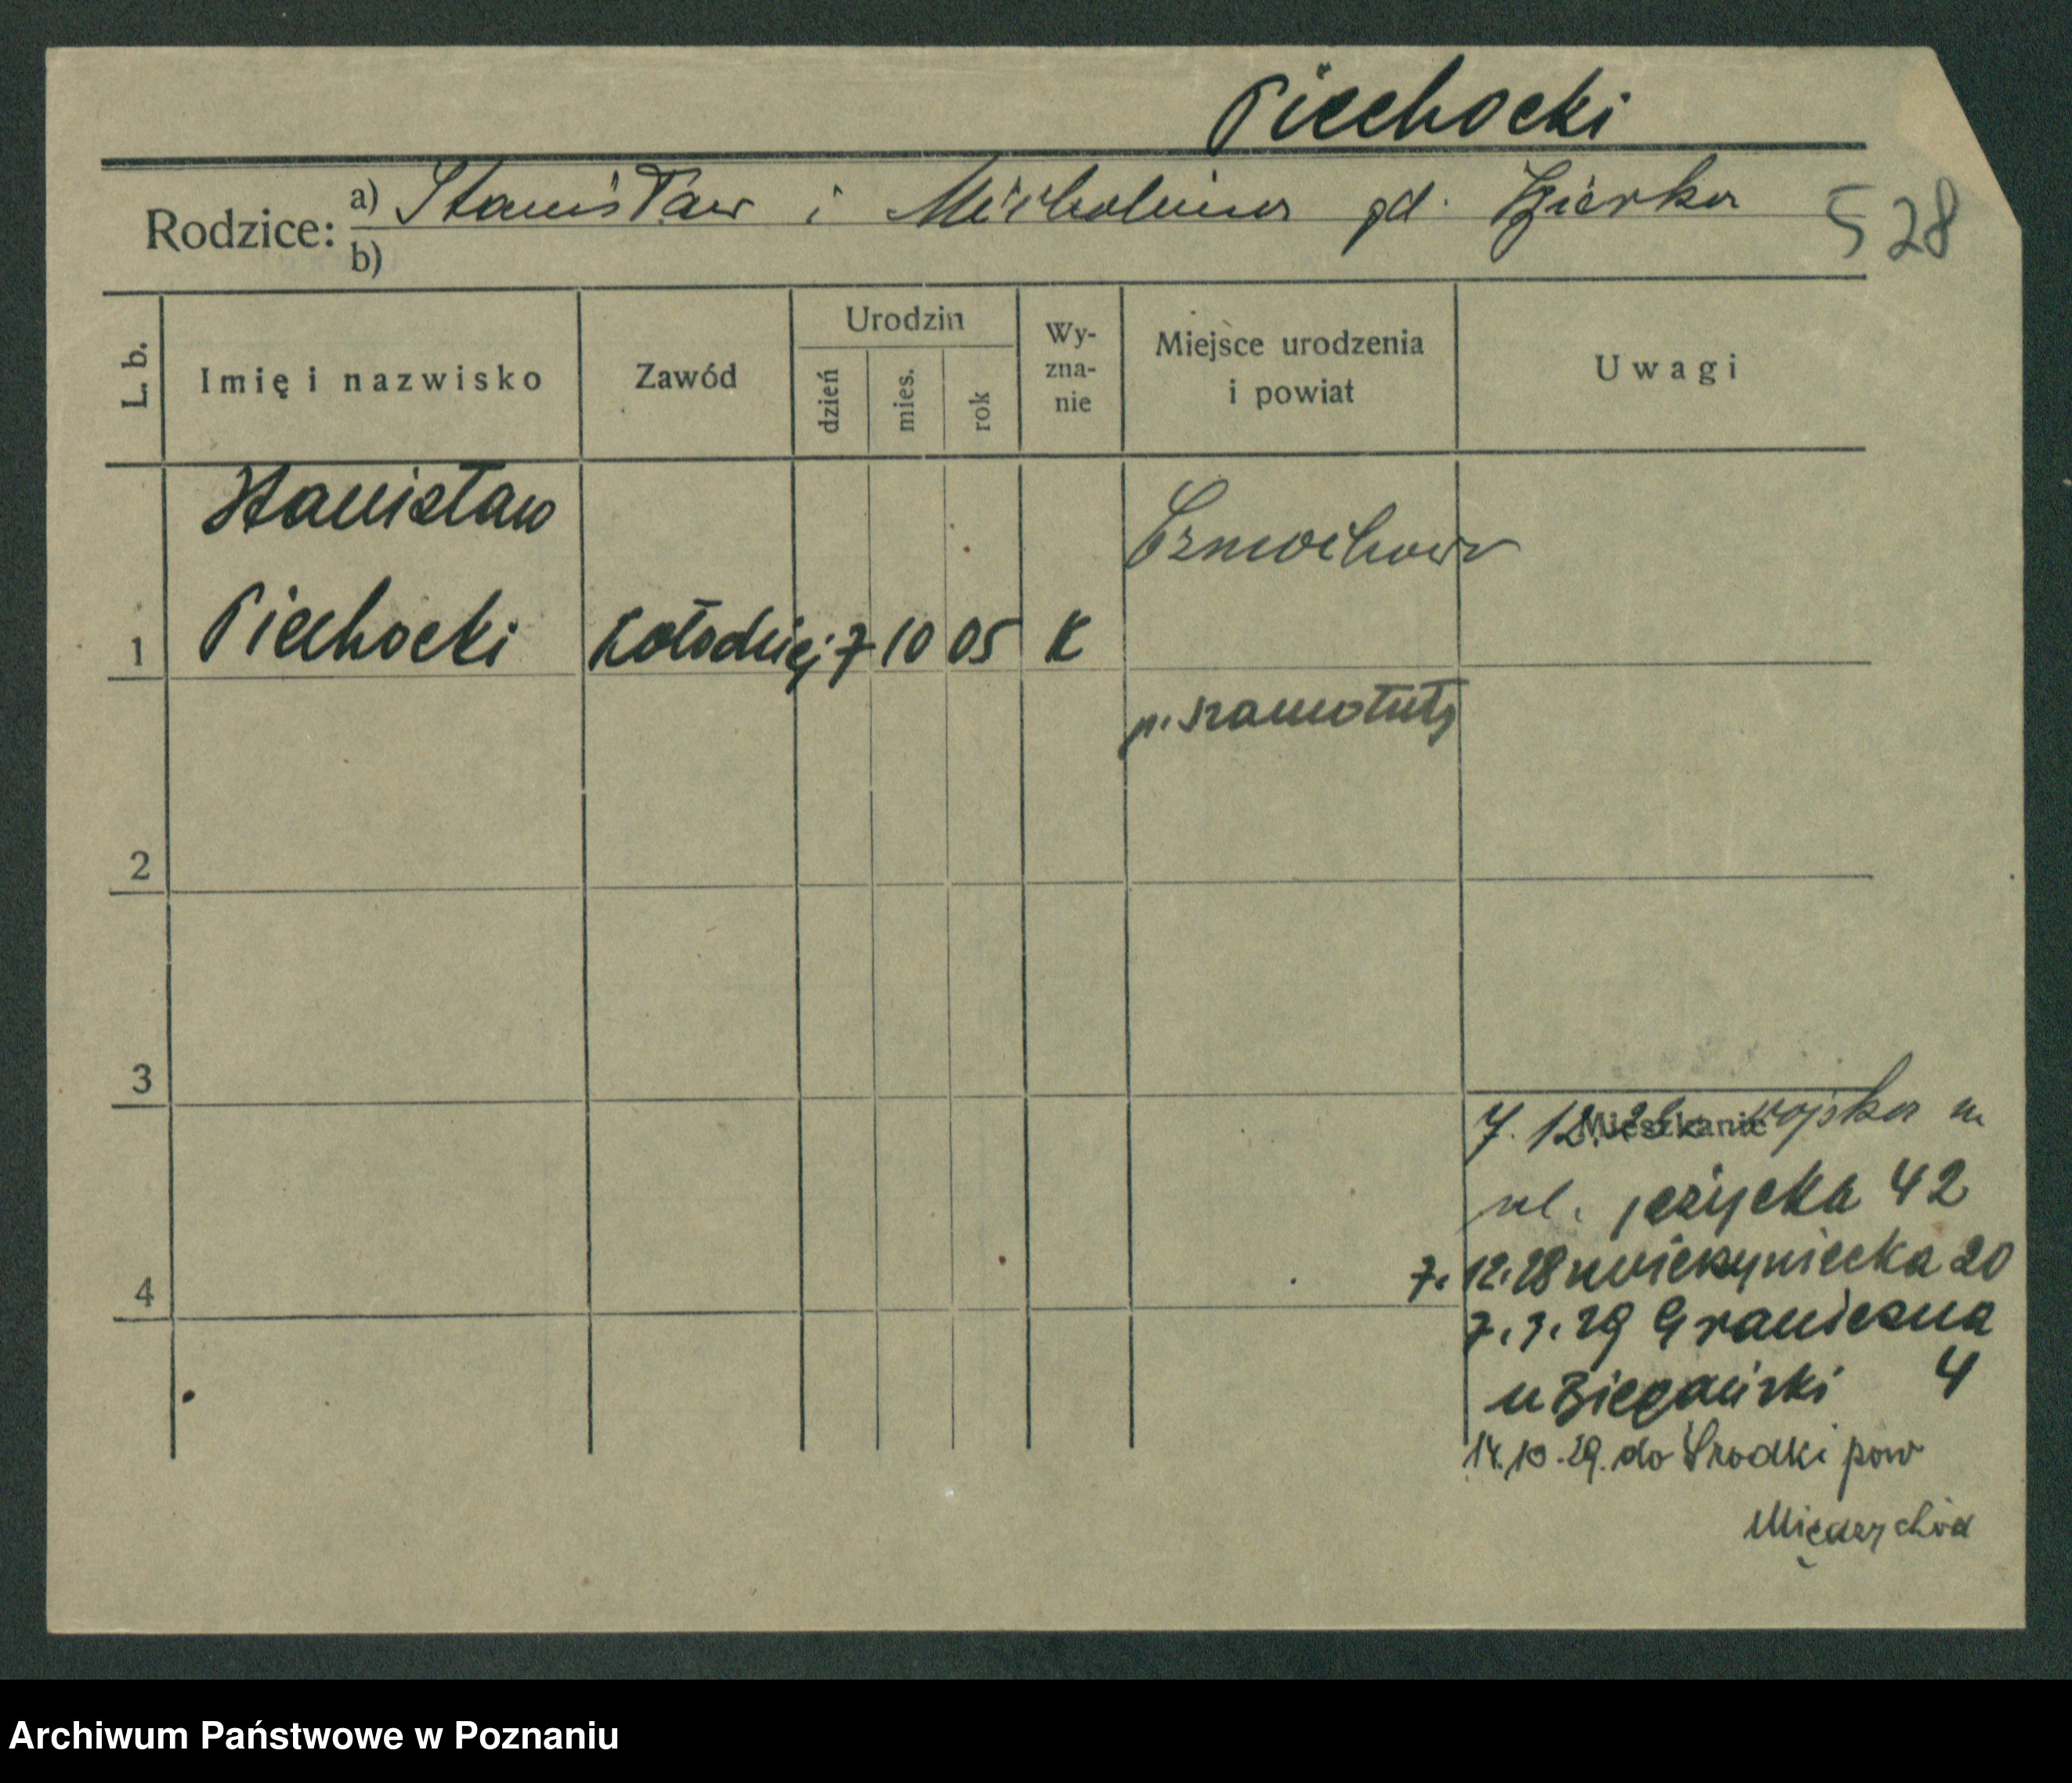 Piechocki
Rodzice: a) Stanisław i Michalina gd. Gierka
b)
528
L. b.
Imię i nazwisko
Zawód
Urodzin
dzień
mies.
rok
Wy-
zna-
nie
Miejsce urodzenia
i powiat
Uwagi
Stanisław
Piechocki
Kołodziej 7 10 05 K
p. Szamotuły
1
2
3
4
Mieszkanie
7. 12. wojska
ul. Jeżycka 42
7. 12. 28 20
7. 3. 29 Graniczna
u Biegański 4
14. 10. 29. do Środki pow
Międzychód
Archiwum Państwowe w Poznaniu